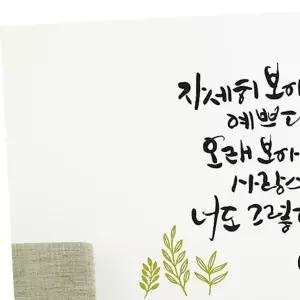 자세히 보아
예쁘다
오래 보아
사랑스
너도 그렇